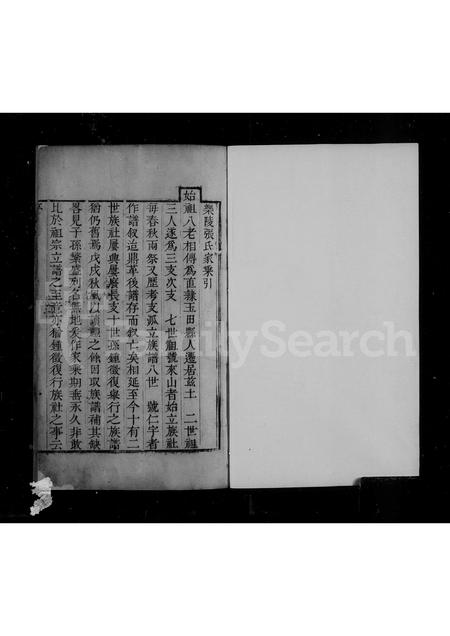 樂陵張氏家乘引
始祖八老相傳為直隸玉田縣人遷居兹土 二世祖
三人遂為三支次支 七世祖號來山者始立族社
每春秋兩祭又歷考支派立族譜八世 號仁宇者
作譜叙迨鼎革後譜存而叙亡矣相延至今十有二
世族社屢典屢廢長支十世孫鍾徵復舉行之族譜
猶仍舊焉戊戌秋 以讀禮之餘因取族譜補其缺
畧見子孫繁盛列名無地矣作家乘期垂永久非敢
比於祖宗立譜之主意亦猶鍾徵復行族社之事云
FamilySearch